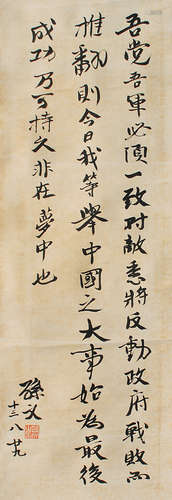 吾党吾軍必須一致对敵悉将反動政府戰敗而
推翻則今日我等舉中國之大事始為最後
成功乃可持久非在夢中也
孫文
十三八廿九